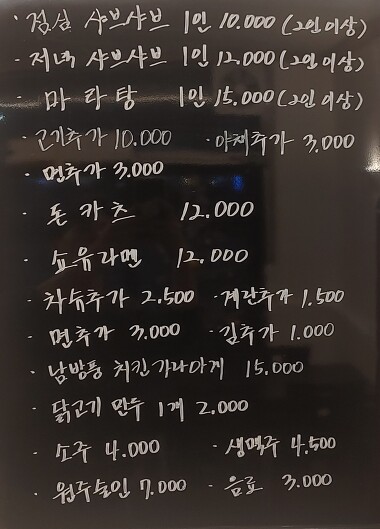 · 점심 샤브샤브 1인 10.000 (2인 이상)
· 저녁 샤브샤브 1인 12.000 (2인 이상)
· 마라탕 1인 15.000 (2인 이상)
· 고기추가 10.000 · 야채추가 3,000
· 면추가 3.000
· 돈카츠 12.000
· 쇼유라멘 12.000
· 차슈추가 2,500 · 계란추가 1.500
· 면추가 3.000 · 김추가 1.000
· 남방풍 치킨가라아게 15.000
· 닭고기 만두 1개 2.000
· 소주 4.000 · 생맥주 4,500
· 원주술인 7.000 · 음료 3.000